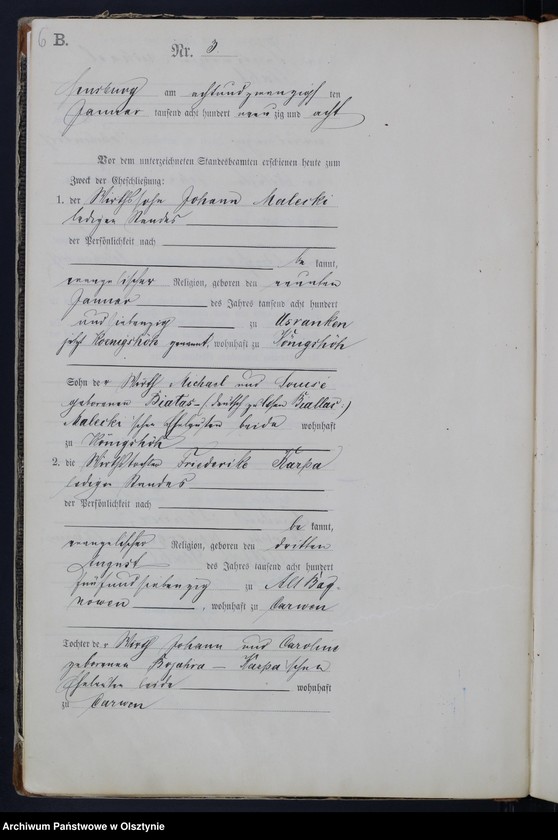 6 B.
Nr. 3
Sensburg am achtundzwanzigsten
Januar tausend acht hundert neunzig und acht
Vor dem unterzeichneten Standesbeamten erschienen heute zum
Zweck der Eheschließung:
1. der Wirthssohn Johann Malecki
ledigen Standes
der Persönlichkeit nach
be kannt,
evangelischer Religion, geboren den neunten
Januar des Jahres tausend acht hundert
undsiebenzig zu Usranken
jetzt Koenigshöh genannt, wohnhaft zu Königshöh
Sohn der Wirth Michael und Louise
geborenen Biatas- (deutsch zu lesen Biallas.)
Malecki'schen Eheleuten beide wohnhaft
zu Königshöh
2. die Wirthstochter Friederike Karpa
ledigen Standes
der Persönlichkeit nach
be kannt,
evangelischer Religion, geboren den dritten
August des Jahres tausend acht hundert
fünfundsiebenzig zu Alt Bag-
nowen, wohnhaft zu Carwen
Tochter der Wirth Johann und Caroline
geborenen – Karpa'schen
Eheleuten beide wohnhaft
zu Carwen
Archiwum Państwowe w Olsztynie